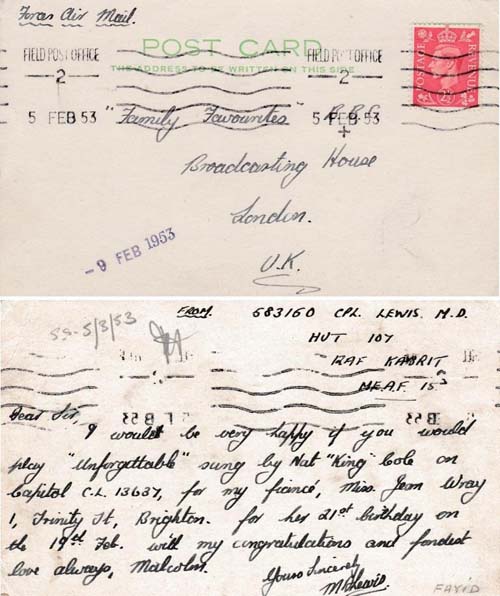 Forces Air Mail.
FIELD POST OFFICE
2
5 FEB 53
POST CARD
THE ADDRESS TO BE WRITTEN ON THIS SIDE
FIELD POST OFFICE
2
5 FEB 53
POSTAGE
REVENUE
"Family Favourites" B.B.C.
Broadcasting House
London.
U.K.
- 9 FEB 1953
SS-5/3/53
FROM. 683160 CPL. LEWIS. M.D.
HUT 107
RAF KABRIT
M.E.A.F. 15
Dear Sir,
I would be very happy if you would
play "Unforgettable" sung by Nat "King" Cole on
Capitol C.L. 13637, for my fiancé, Miss. Jean Wray
1, Trinity St, Brighton. for her 21st birthday on
the 19th Feb. with my congratulations and fondest
love always, Malcolm.
Yours Sincerely
M.D. Lewis.
FARID